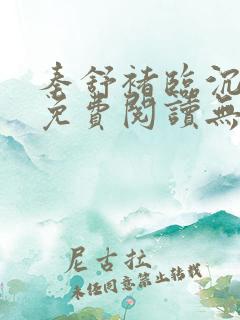 秦舒褚臨沉
免費閱讀無
尼古拉
未经同意禁止转载